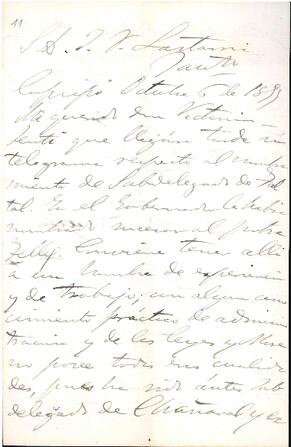 11
Sr. D. J. V. Lastarria
Copiapó Octubre 6 de 1889
Mi querido don Victorino
Sentí que llegara tarde su
telegrama respecto al nombra
miento de Subdelegado de Tal
tal. Ya el Gobernador le había
nombrado sucesor al pobre
Conviene tener allí
a un hombre de experiencia
y de trabajo; con algun cono
cimiento práctico de adminis
tración y de las leyes y More
no posee todas esas cualida
des, pues ha sido antes Sub
delegado de Chañaral y es